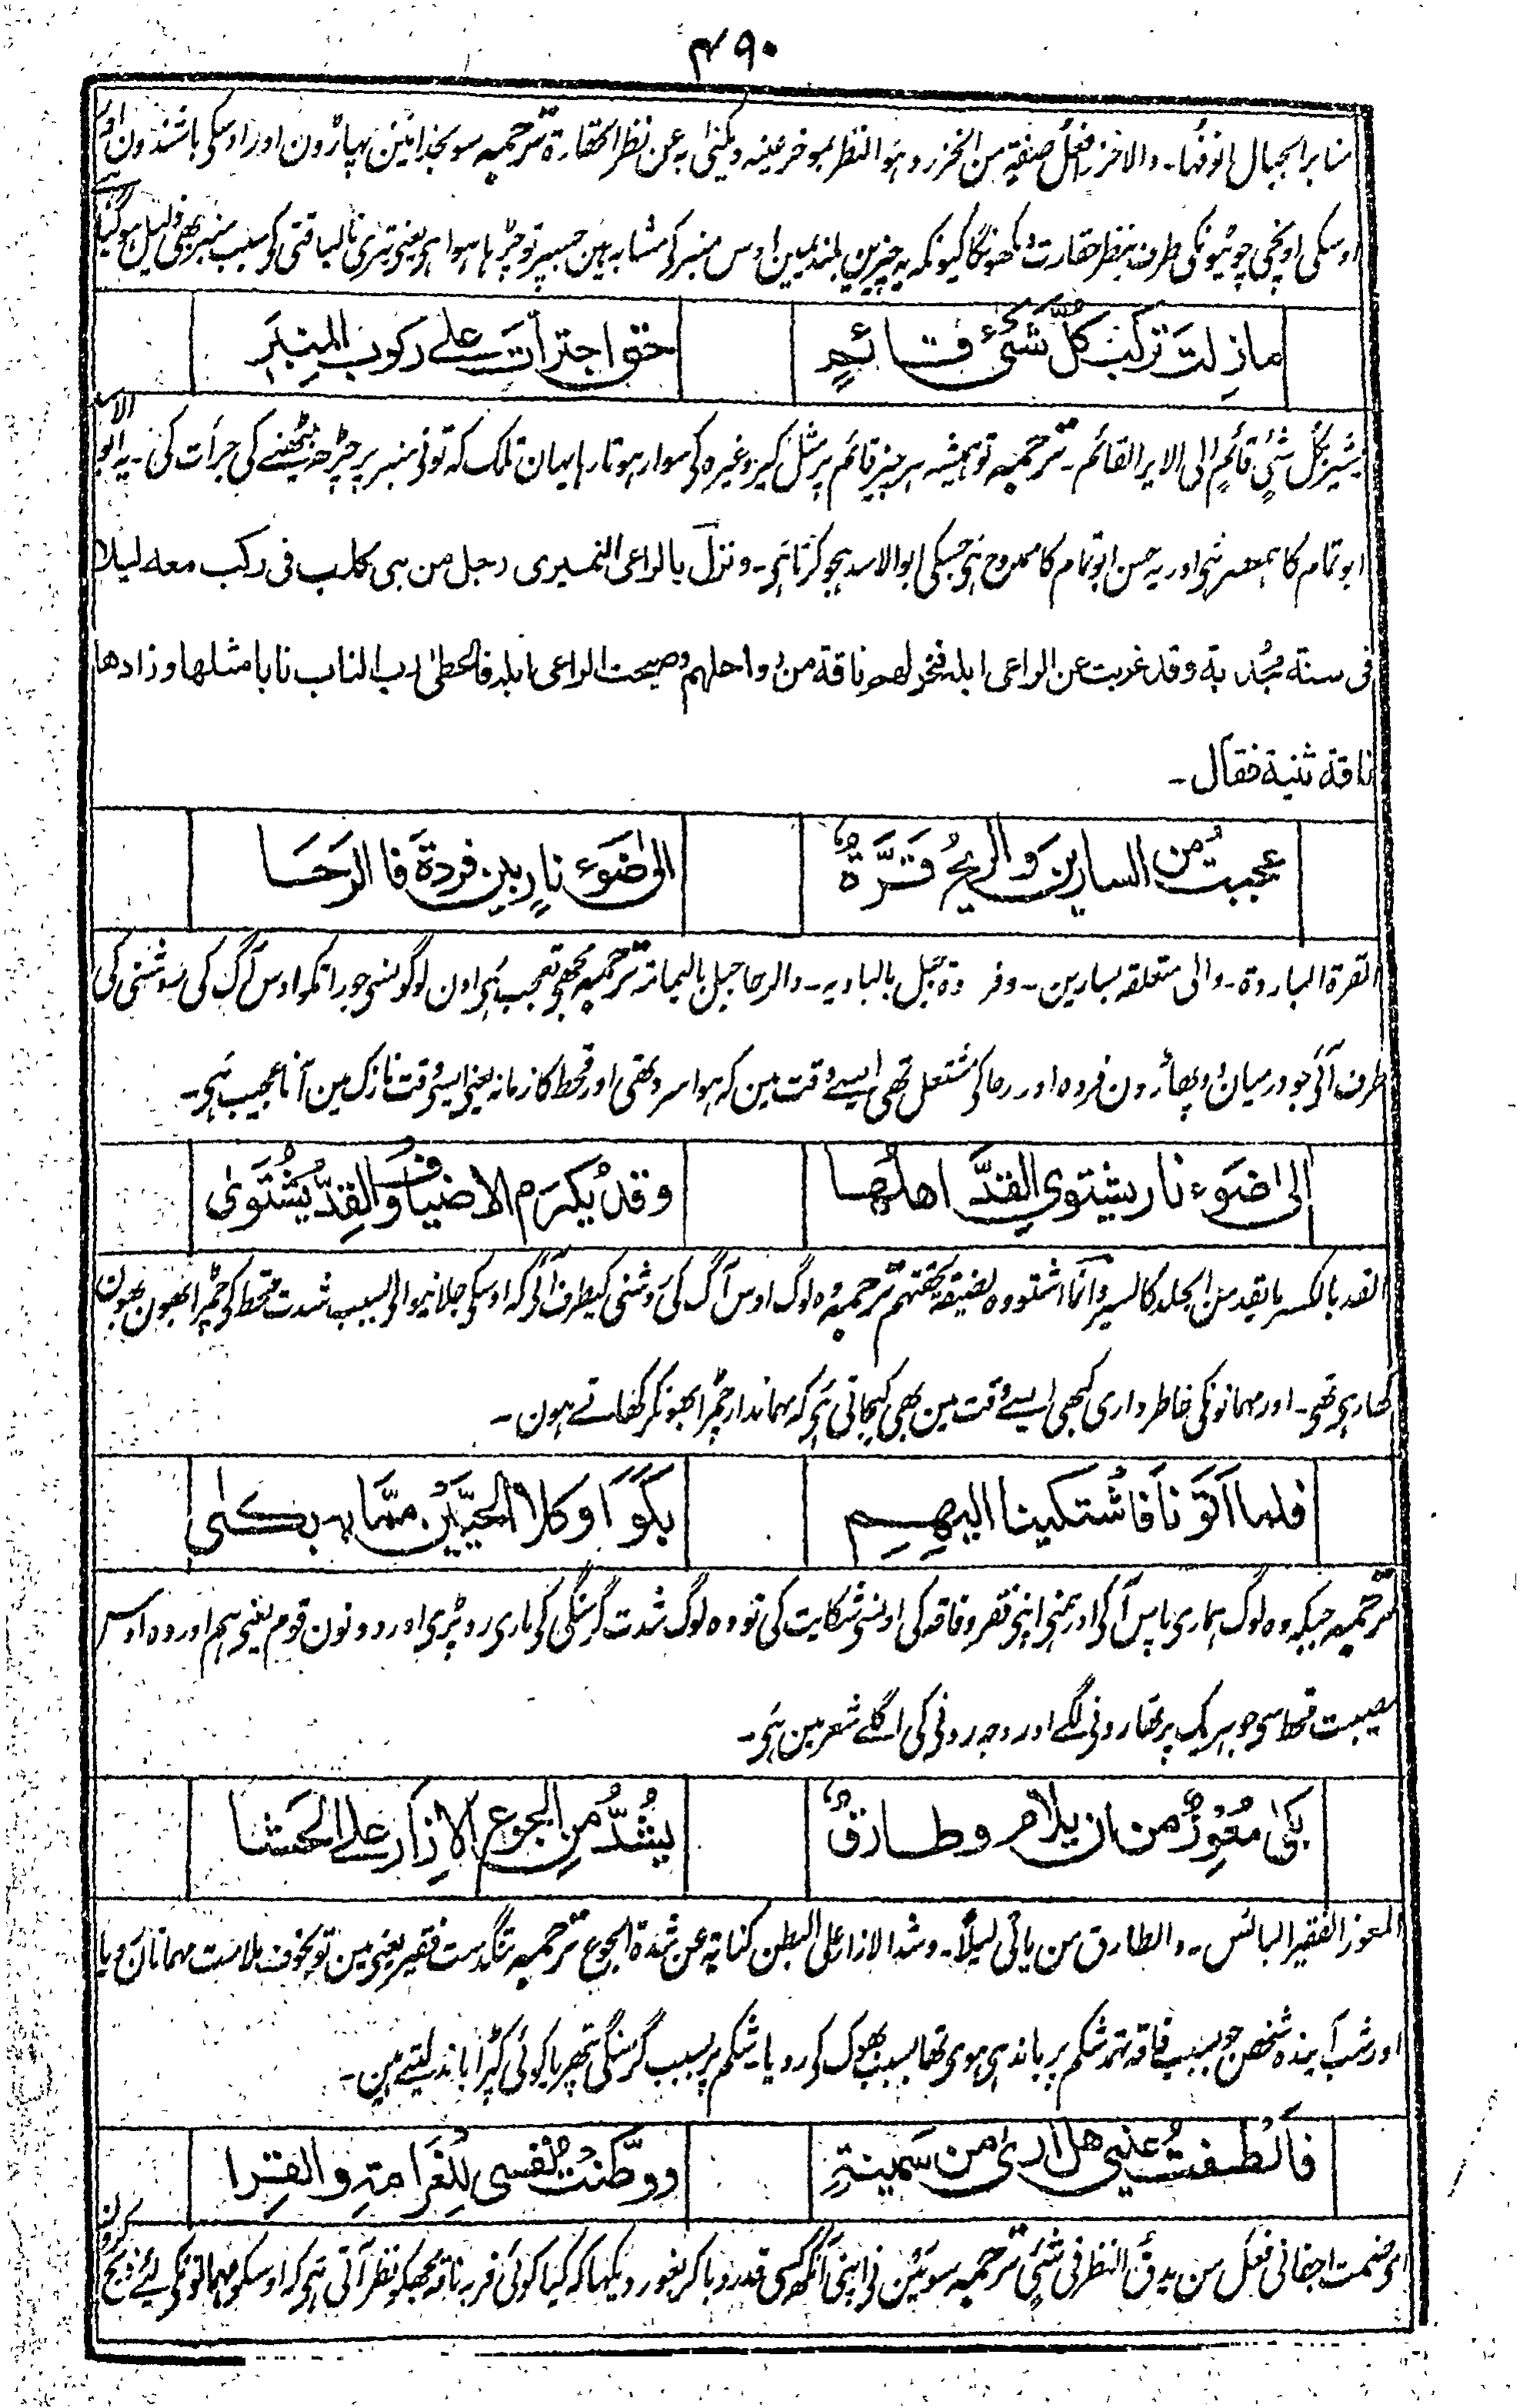 ۴۹۰
منابر الجبال انوفہا۔ والاخزر افعل صفۃ من الخزر وہو النظر بموخر عینہ ویکنی بہ عن نظر الحقارۃ ترجمہ سو بخدا مین پہاڑون اور اوسکی باشندون اور
اوسکی اونچی چوٹیونکی طرف بنظر حقارت دیکھونگا کیونکہ یہ چیزین بلندیمین اوس منبر کی مشابہ ہین جسپر تو چڑہا ہوا ہی یعنی تیری نالیاقتی کی سبب منبر بھی ذلیل ہوگیا ہے
مازِلتَ ترکَبُ کلَّ شَیْءٍ قائمٍ حتی اجترأتَ علے رکوب المنبَرِ
یشیر بکل شیٔ قائم الی الایر القائم۔ ترجمہ تو ہمیشہ ہر چیز قائم پر مثل کیر وغیرہ کی سوار ہوتا رہا یہان تلک کہ تونی منبر پر چڑھ بیٹھنے کی جرأت کی۔ یہ ابو الاسد
ابو تمام کا ہمعصر ہی اور یہ حسن ابو تمام کا ممدوح ہی جسکی ابو الاسد ہجو کرتا ہی۔ ونزل بالراعی النمیری رجل من بنی کلاب فی رکب معہ لیلا
فی سنۃ مجدبۃ وقد غربت عن الراعی ابلہ فنحر لھم ناقۃ من رواحلہم وصبحت الراعی ابلہ فاعطیٰ رب الناب نابا مثلھا وزادھا
ناقۃ ثنیۃ فقال۔
عجبتُ من السارین والریحُ قَرَّۃٌ الیٰ ضَوءِ نارٍ بین فردۃَ فالرَحَا
القرۃ الباردۃ۔ والی متعلقہ بسارین۔ وفردۃ جبل بالبادیہ۔ والرحا جبل بالیمامۃ ترجمہ مجھی تعجب ہی اون لوگونسی جو راتکو اوس آگ کی روشنی کی
طرف آئی جو درمیان دو پھاڑون فردہ اور رحا کی مشتعل تھی ایسے وقت مین کہ ہوا سرد تھی اور قحط کا زمانہ یعنی ایسی وقت نازک مین آنا عجیب ہی۔
الیٰ ضَوءِ نارٍ یشتوی القِدَّ اھلُھا وقد یُکرَم الاضیافُ والقِدُّ یُشْتَویٰ
القد بالکسر ما یقد من الجلد کالسیر وانما اشتووہ لضیقۃ لحقتہم ترجمہ وہ لوگ اوس آگ کی روشنی کیطرف آئی کہ اوسکی جلانیوالی بسبب شدت قحط کی چمڑا بھون بھون
کھا رہی تھی۔ اور مہمانونکی خاطرداری کبھی ایسے وقت مین بھی کیجاتی ہی کہ مہماندار چمڑا بھونکر کھاتے ہون۔
فلما اَتَوْنا فاشتکینا الیھِمِ بَکَوْا وکلا الحَیَّیْنِ ممّا بہ بکیٰ
ترجمہ جبکہ وہ لوگ ہماری پاس آئی اور ہمنی اپنی فقر وفاقہ کی اونسی شکایت کی تو وہ لوگ شدت گرسنگی کی ماری رو پڑی اور دونون قوم یعنی ہم اور وہ اوس
مصیبت قحط سی جو ہریک پر تھا رونی لگے اور وجہ رونی کی اگلے شعر مین ہی۔
بکیٰ مُعْوِزٌ من ان یلام وطارقٌ یشُدُّ من الجوع الازار علے الحَشا
المعوز الفقیر البائس۔ والطارق من یاتی لیلًا۔ وشد الازار علی البطن کنایۃ عن شدۃ الجوع ترجمہ تنگدست فقیر یعنی مین تو بخوف ملامت مہمانان رویا
اور شب آیندہ شخص جو بسبب فاقہ تہمد شکم پر باندہی ہوی تھا بسبب بھوک کی رویا۔ شکم پر بسبب گرسنگی پتھر یا کوئی کپڑا باندہ لیتے ہین۔
فاَلْطَفتُ عینی ھل اریٰ من سَمِینۃٍ ووطَّنتُ نفسی للغَرامۃِ والقِرا
ای ضممت اجفانی فعل من یدق النظر فی شئی ترجمہ سو مین نی اپنی آنکھ کسی قدر دبا کر بغور دیکھا کہ کیا کوئی فربہ ناقہ مجھکو نظر آتی ہی کہ اوسکو مہمانونکی لئے ذبح کرون